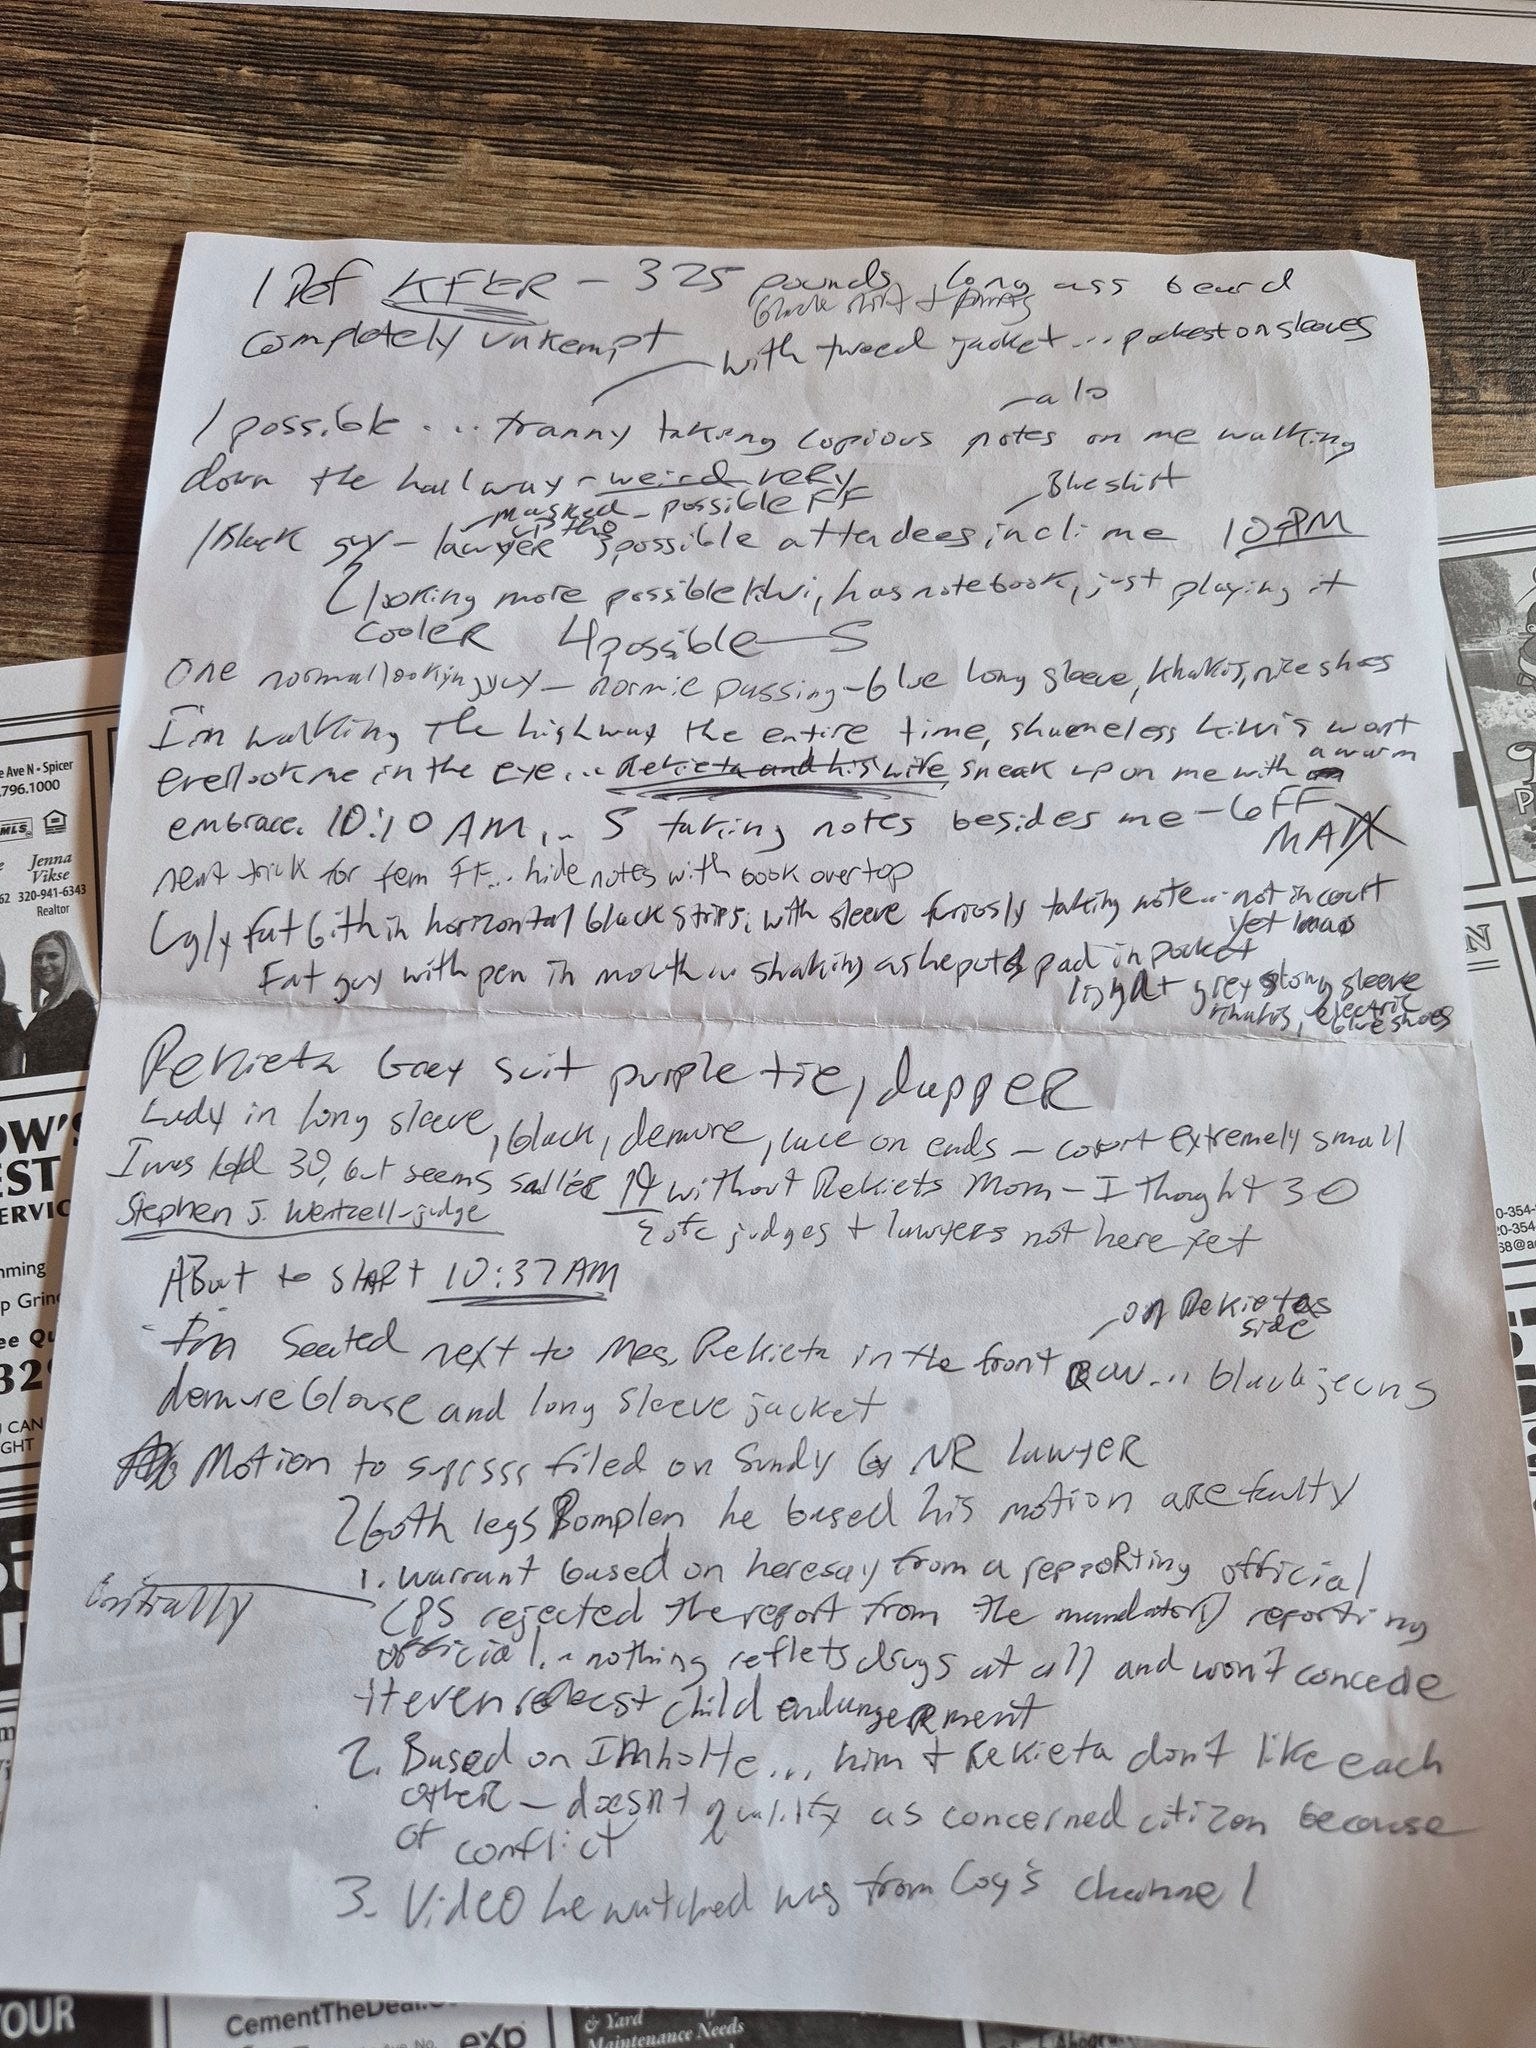 1 Def KFER - 325 pounds, long ass beard
black shirt + pants
completely unkempt
with tweed jacket... pockets on sleeves
- a lo
1 possible... tranny taking copious notes on me walking
down the hallway - weird very
Blue shirt
masked - possible FF
1 Black guy - lawyer possible attendees incl: me 10 PM
looking more possible Kiwi, has notebook, just playing it
cooler 4 possible - 5
One normal lookin guy - normie passing - blue long sleeve, khakis, nice shoes
I'm walking the highway the entire time, shameless kiwis wont
even look me in the eye... Rekieta and his wife, sneak up on me with a warm
embrace. 10:10 AM... 5 taking notes besides me - 6 FF
MAX
neat trick for fem FF... hide notes with book over top
Ugly fat bith in horizontal black strips, with sleeve furiosly taking note... not in court
yet lmao
Fat guy with pen in mouth shaking as he puts pad in pocket
light grey long sleeve
khakis, electric
blue shoes
Rekieta Grey suit purple tie, dapper
Lady in long sleeve, black, demure, lace on ends - court extremely small
I was told 30, but seems smaller 14 without Rekiets Mom - I thought 30
Stephen J. Wentzell - judge
judges + lawyers not here yet
ABout to StARt 10:37 AM
on Rekietas
side
I'm Seated next to Mrs. Rekieta in the front Row... black jeans
demure blouse and long sleeve jacket
Motion to supsss filed on Sundy by NR lawyer
both legs he based his motion are faulty
1. warrant based on heresay from a reporting official
initially
CPS rejected the report from the mandatory reporting
official. - nothing reflets drugs at all and won't concede
it even reflecst child endangerment
2. Based on Imholte... him + Rekieta don't like each
other - doesn't qualify as concerned citizen because
of conflict
3. Video he watched was from Cog's channel
e Ave N • Spicer
.796.1000
MLS
Jenna
Vikse
62 320-941-6343
Realtor
OW'S
EST
ERVIC
ming
p Grin
ee Qu
32
CAN
GHT
YOUR
CementTheDeal.
exp
& Yard
Maintenance Needs
N
0-354-
20-354-
68@a